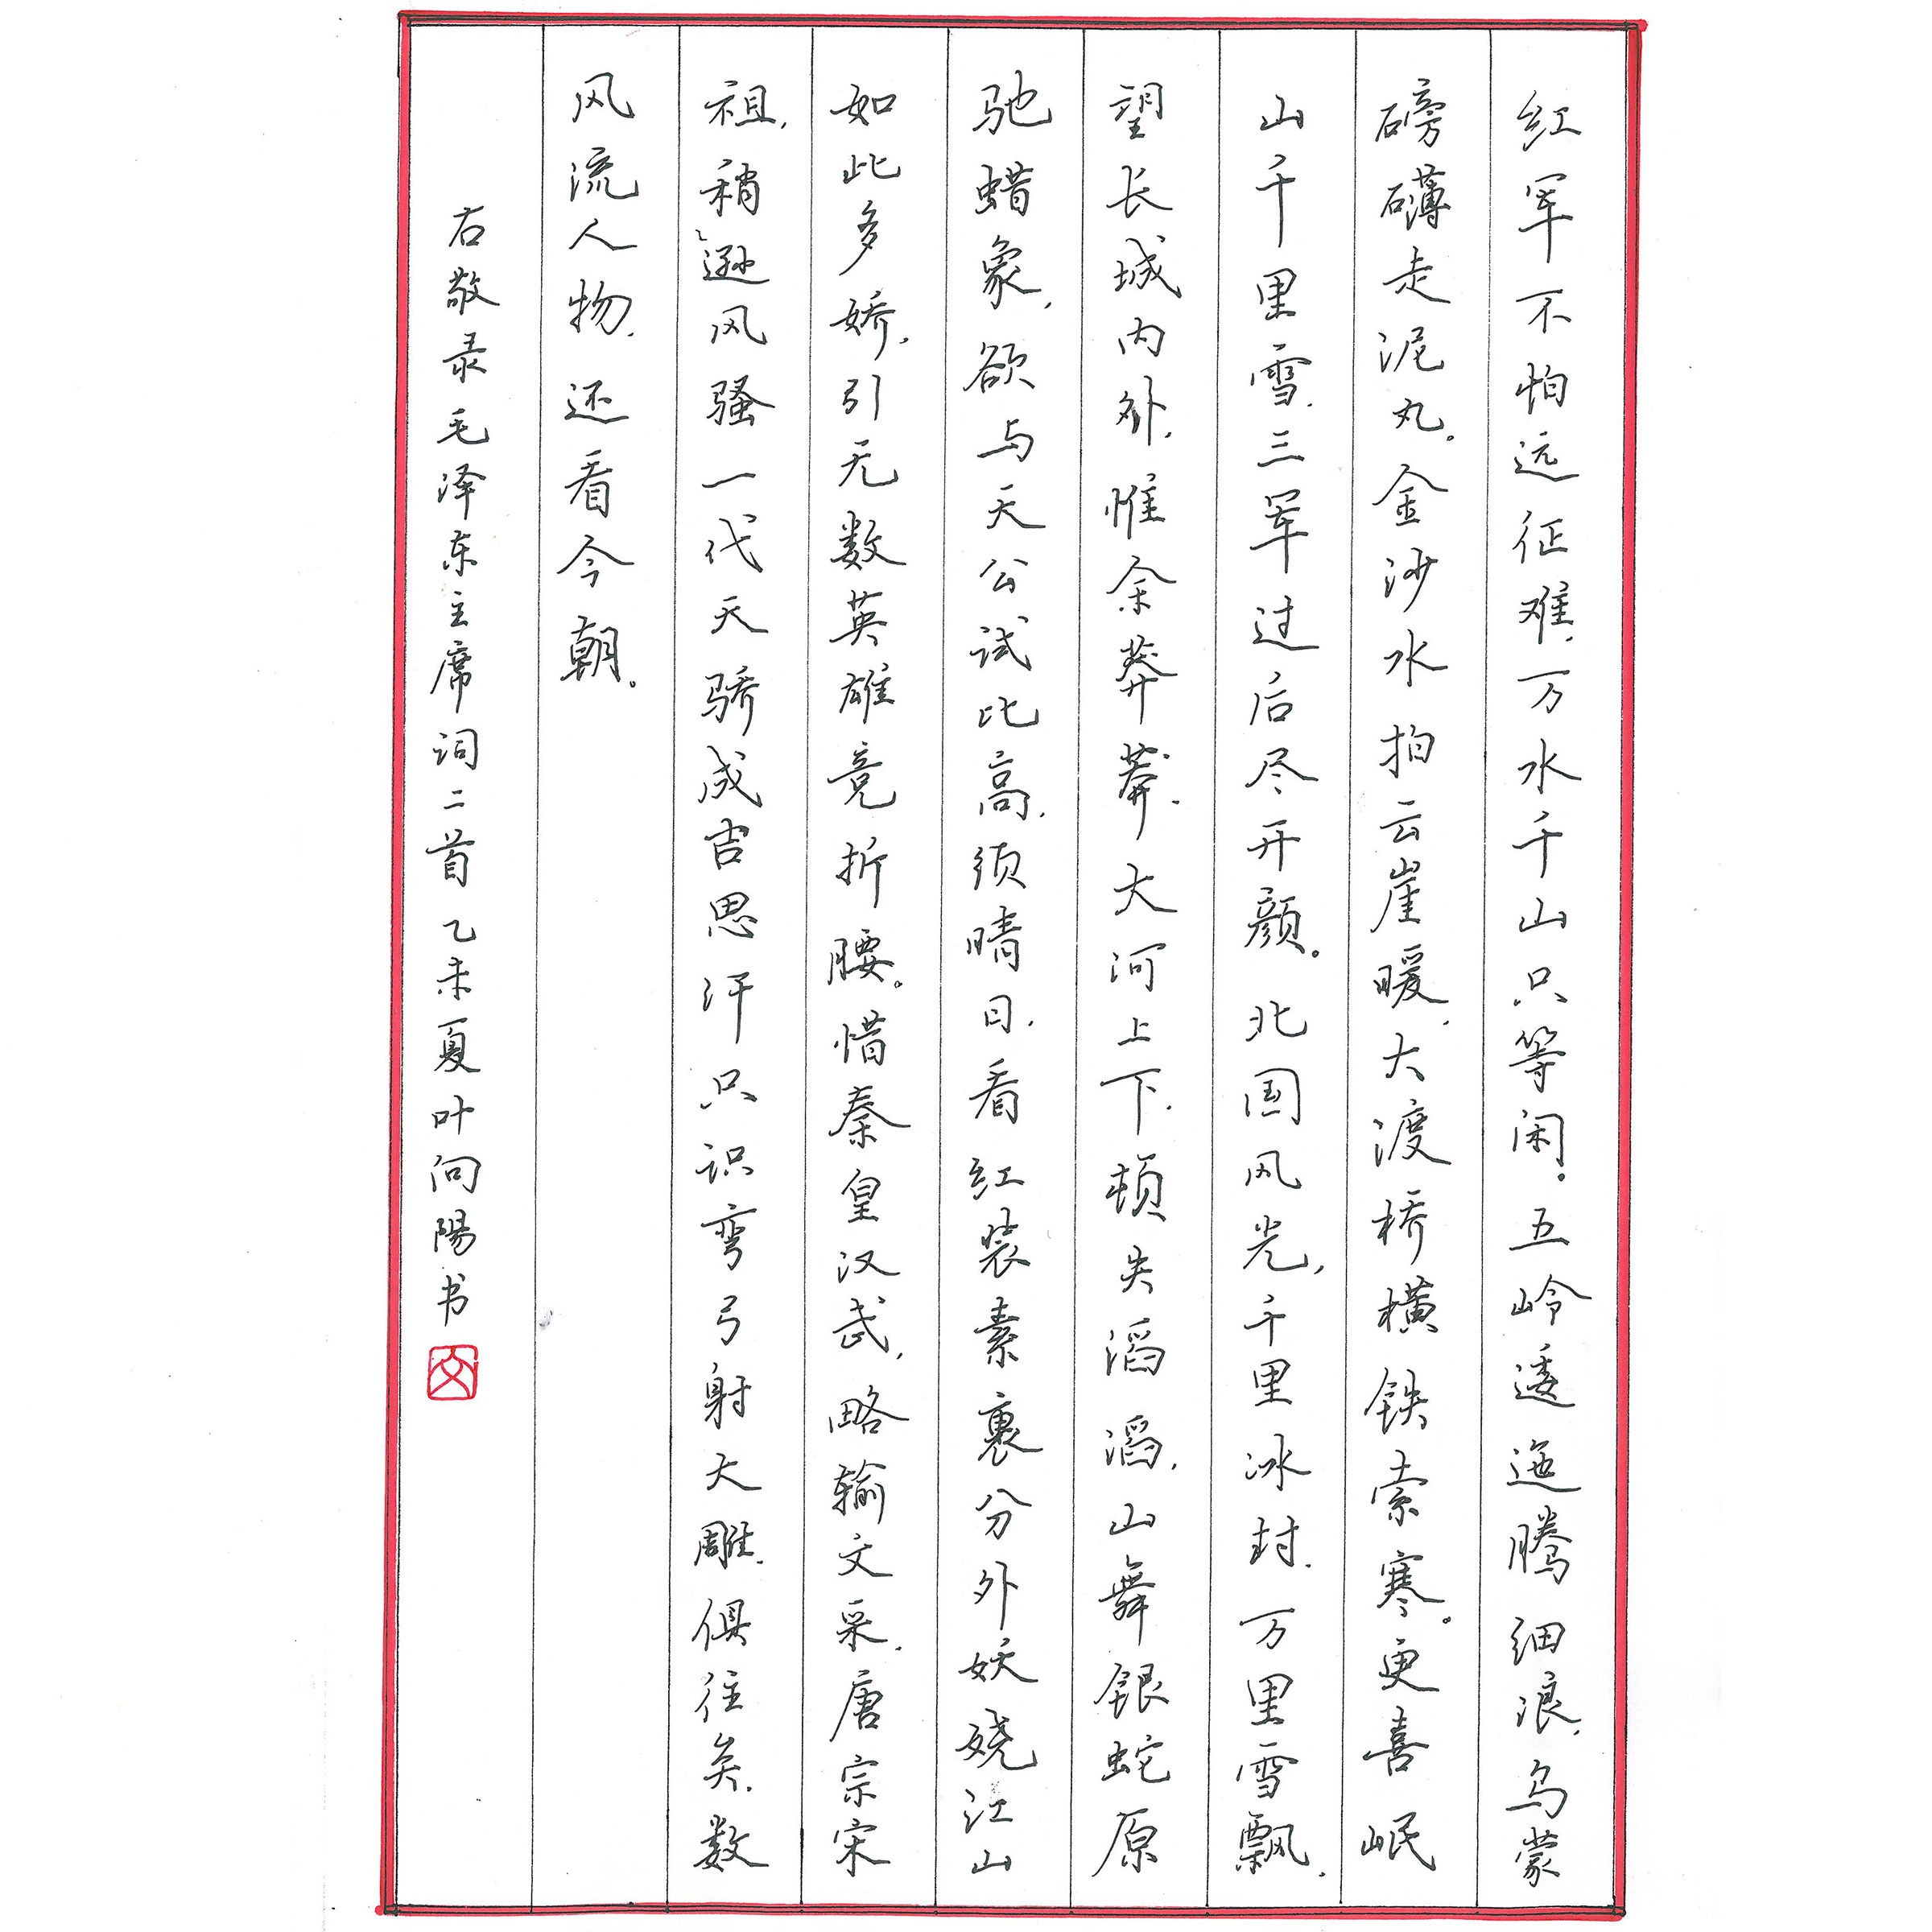 红军不怕远征难,万水千山只等闲。五岭逶迤腾细浪,乌蒙
磅礴走泥丸。金沙水拍云崖暖,大渡桥横铁索寒。更喜岷
山千里雪,三军过后尽开颜。北国风光,千里冰封,万里雪飘,
望长城内外,惟余莽莽,大河上下,顿失滔滔,山舞银蛇原
驰蜡象,欲与天公试比高,须晴日,看红装素裹分外妖娆江山
如此多娇,引无数英雄竞折腰。惜秦皇汉武,略输文采,唐宗宋
祖,稍逊风骚一代天骄成吉思汗只识弯弓射大雕,俱往矣,数
风流人物,还看今朝。
右敬录毛泽东主席词二首乙未夏叶向陽书